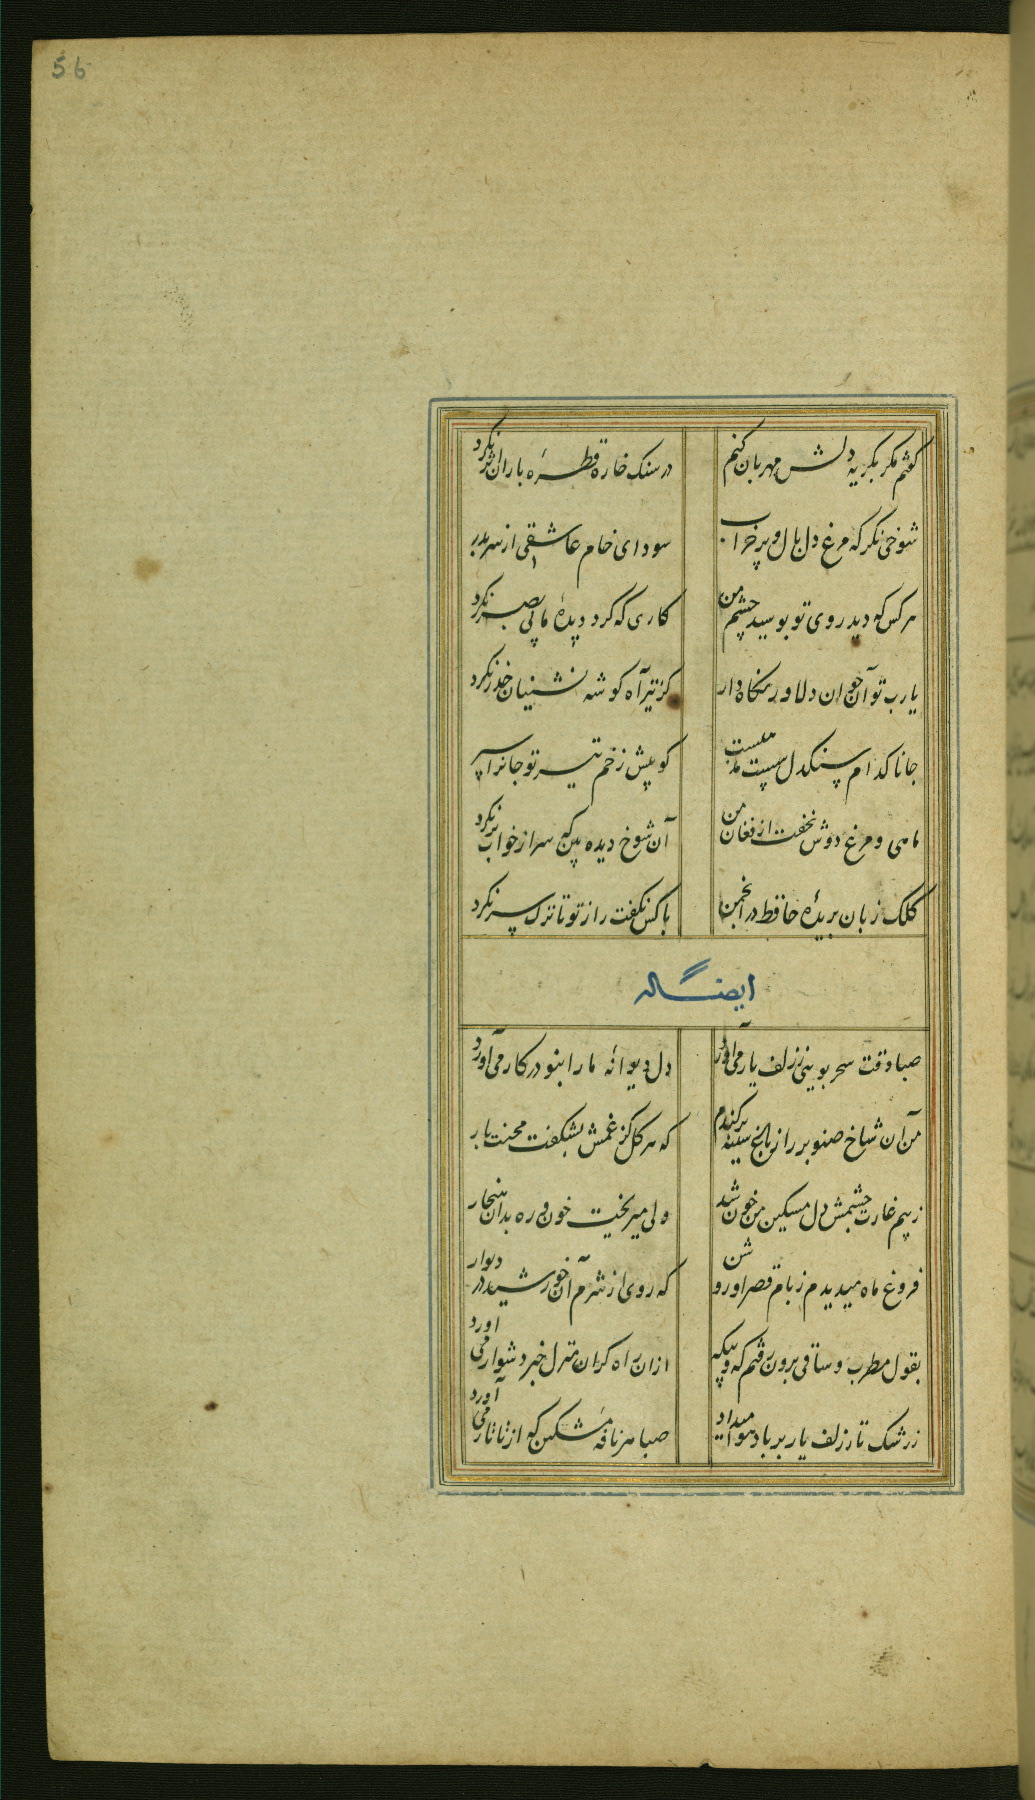 56
گفتم مگر بگریه دلش مهربان کنم در سنک خاره قطرهٔ باران اثر نکرد
شوخی نکر که مرغ دل بال و پر خراب سودای خام عاشقی از سر بدر
هر کس که دید روی تو بوسید چشم من کاری که کرد دیدهٔ ما بی بصر نکرد
یا رب تو آن جوان دلاور نکاه دار کز تیر آه کوشه نشینان حذر نکرد
جانا کدام سنکدل کو پیش زخم تیر تو جانرا سپر
ماهی و مرغ دوش نخفت از فغان من آن شوخ دیده بین که سر از خواب بر نکرد
کلک زبان بریدهٔ حافظ در انجمن با کس نکفت راز تو تا ترک سر نکرد
ایضا له
صبا وقت سحر بویی ز زلف یار می آورد دل دیوانه ما را بنو در کار می آورد
من آن شاخ صنوبر را ز باغ سینه برکندم که هر کل کز غمش بشکفت محنت بار
ز بیم غارت چشمش دل مسکین من خون شد ولی میریخت خون و ره بدان هنجار
فروغ ماه میدیدم ز بام قصر او روشن که روی از شرم آن خورشید در دیوار
بقول مطرب و ساقی برون رفتم که و بیکه ازان راه کران منزل خبر دشوار می آورد
ز رشک تار زلف یار بر باد هوا میداد صبا هر نافهٔ مشکین که از تاتار می آورد